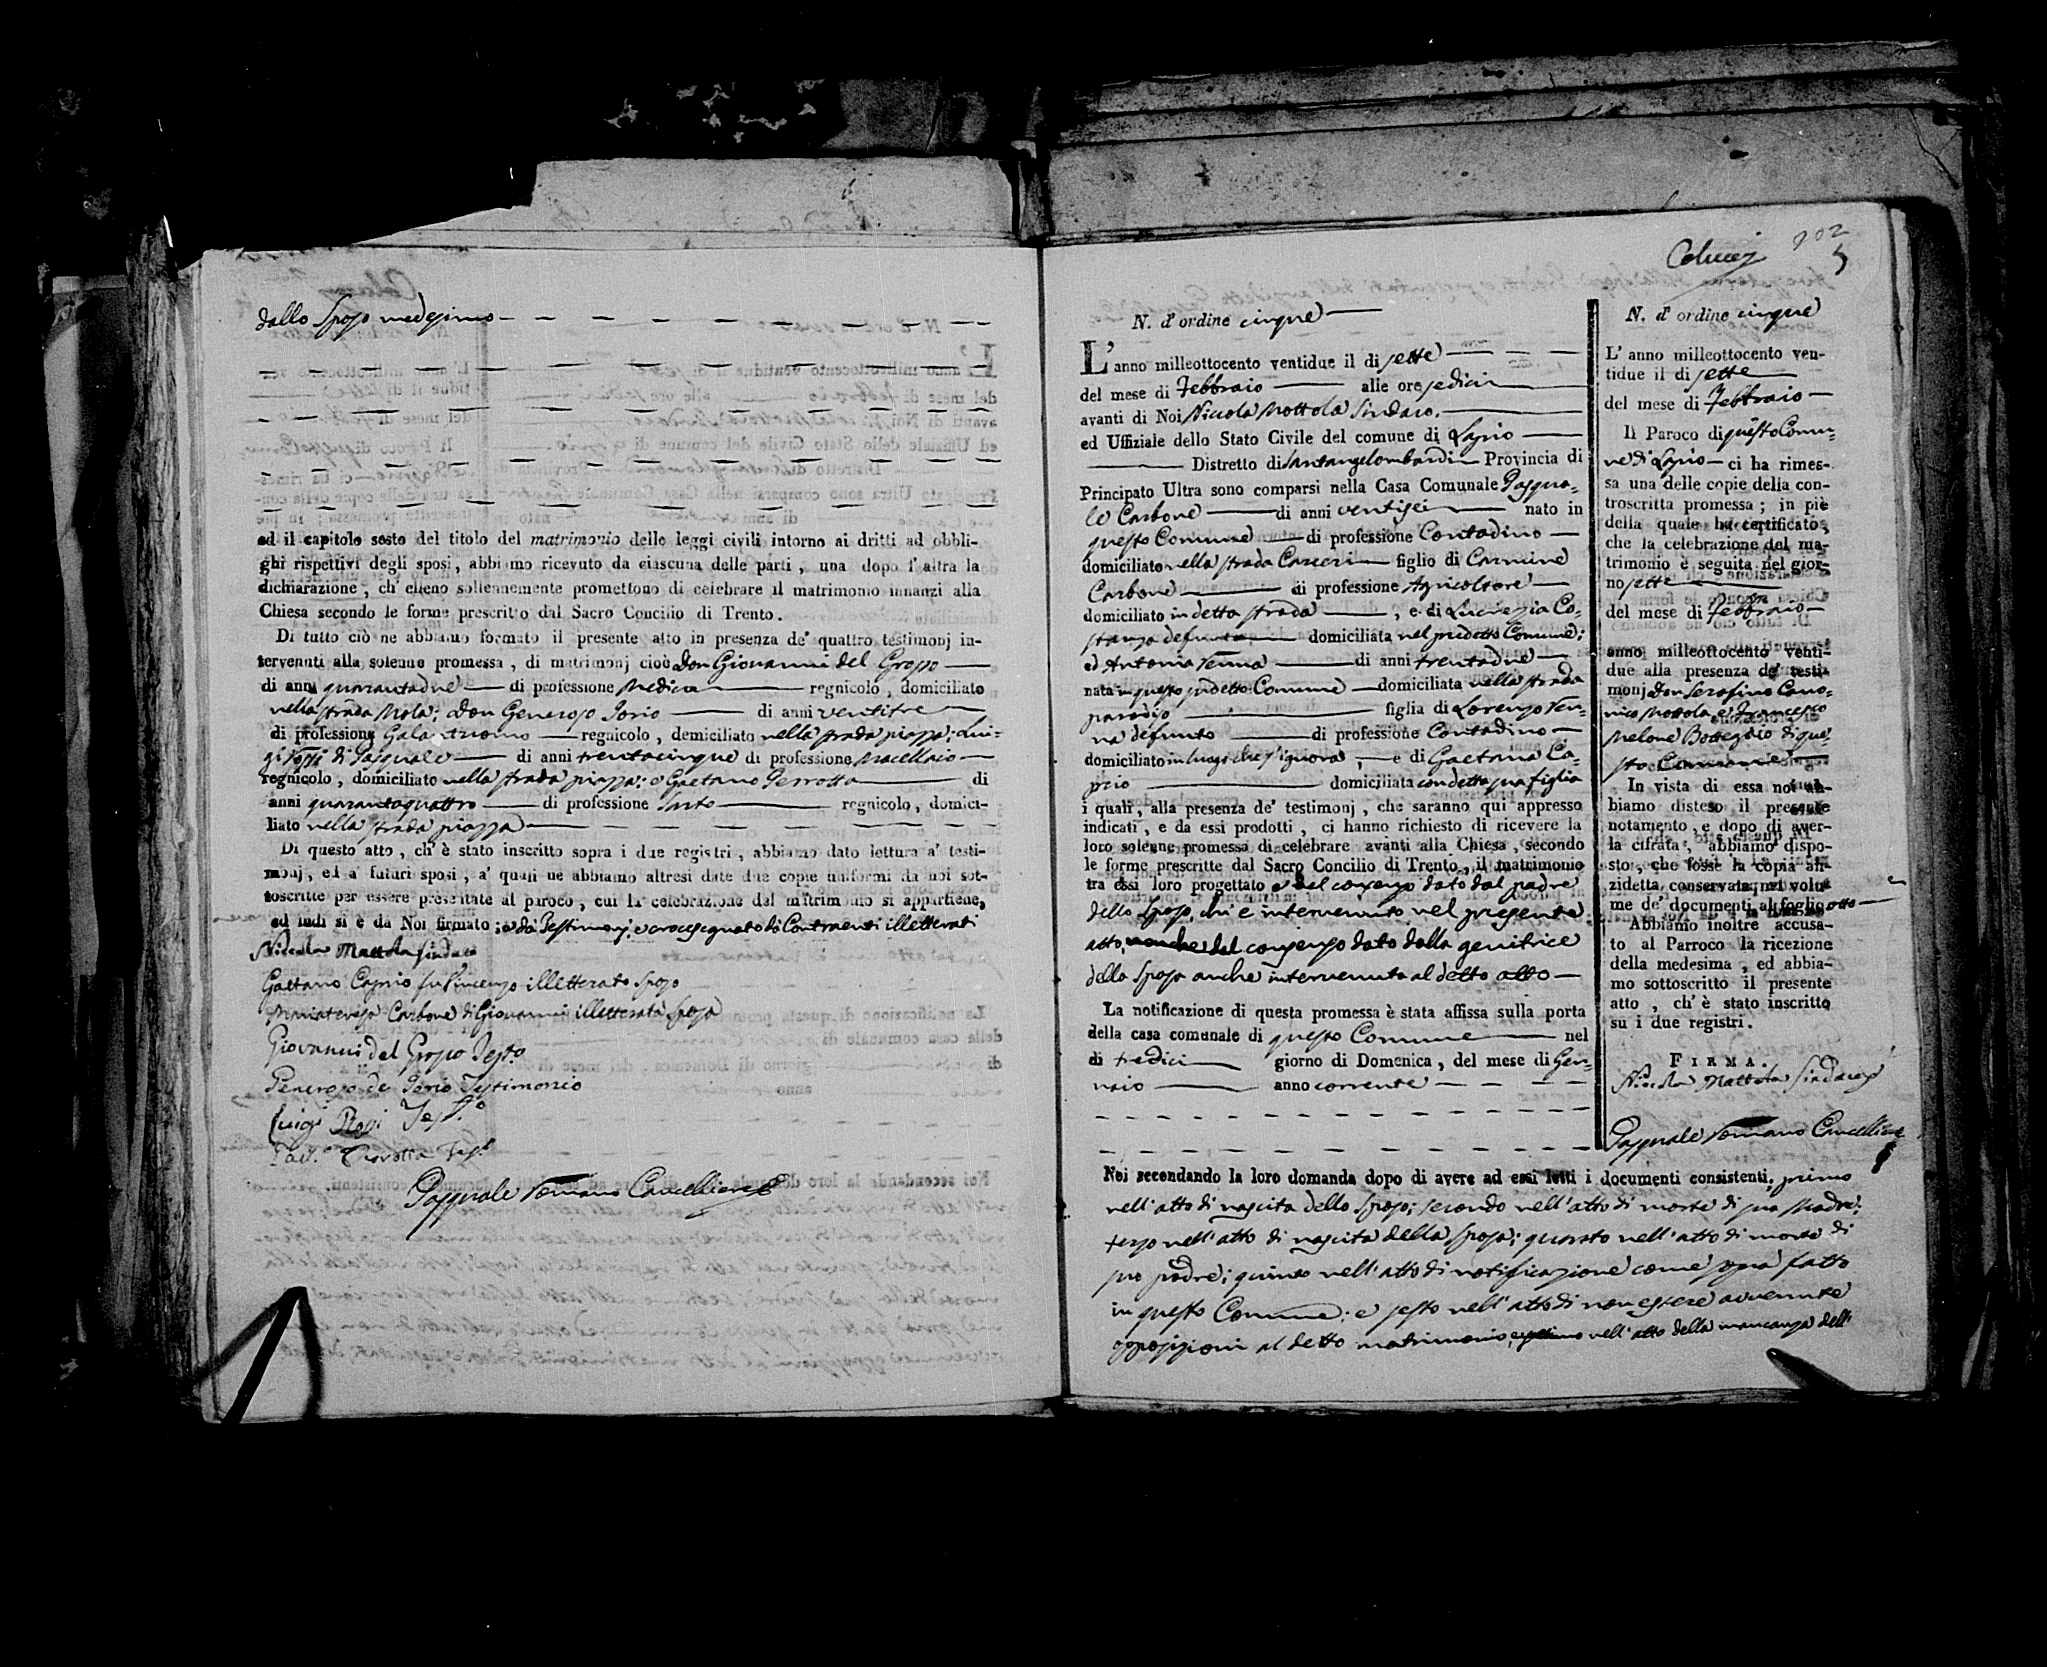 dallo Sposo medesimo
ed il capitolo sesto del titolo del matrimonio delle leggi civili intorno ai dritti ad obbli-
ghi rispettivi degli sposi, abbiamo ricevuto da ciascuna delle parti, una dopo l'altra la
dichiarazione, ch' elleno sollennemente promettono di celebrare il matrimonio innanzi alla
Chiesa secondo le forme prescritto dal Sacro Concilio di Trento.
Di tutto ciò ne abbiamo formato il presente atto in presenza de' quattro testimonj in-
tervenuti alla solenne promessa, di matrimonj cioè Don Giovanni del Grosso
di anni quarantadue di professione Medico regnicolo, domiciliato
nella strada Mola; Don Generoso Iorio di anni ventitre
di professione Galantuomo regnicolo, domiciliato nella strada piazza; Lui-
gi Rossi di Pasquale di anni trentacinque di professione Macellaio
regnicolo, domiciliato nella strada piazza; e Gaetano Perrotta di
anni quarantaquattro di professione Sarto regnicolo, domici-
liato nella strada piazza
Di questo atto, ch'è stato inscritto sopra i due registri, abbiamo dato lettura a' testi-
monj, ed a' futuri sposi, a' quali ne abbiamo altresì date due copie uniformi da noi sot-
toscritte per essere presentate al paroco, cui la celebrazione del matrimonio si appartiene,
ed indi si è da Noi firmato; e da Testimonj, e crocesegnato da Contraenti illetterati
Niccola Mottola Sindaco
Gaetano Caprio fu Vincenzo illetterato Sposo
Mariateresa Carbone di Giovanni illetterata Sposa
Giovanni del Grosso Test.o
Generoso de Iorio Testimonio
Luigi Rossi Test.o
Perrotta Test.o
Pasquale Romano Cancelliere
Colucci 202
5
N. d' ordine cinque
L' anno milleottocento ventidue il di sette
del mese di Febbraio alle ore sedici
avanti di Noi Niccola Mottola Sindaco,
ed Uffiziale dello Stato Civile del comune di Lapio
Distretto di Santangelombardi Provincia di
Principato Ultra sono comparsi nella Casa Comunale Pasqua-
le Carbone di anni ventisei nato in
questo Comune di professione Contadino
domiciliato nella strada Carceri figlio di Carmine
Carbone di professione Agricoltore
domiciliato in detta strada, e di Lucrezia Co-
stanza defunta domiciliata nel predetto Comune;
ed Antonia Venna di anni trentadue
nata in questo predetto Comune domiciliata nella strada
paradiso figlia di Lorenzo Ven-
na defunto di professione Contadino
domiciliato in luogo che s'ignora, e di Gaetana Ca-
prio domiciliata con detta sua figlia
i quali, alla presenza de' testimonj, che saranno qui appresso
indicati, e da essi prodotti, ci hanno richiesto di ricevere la
loro solenne promessa di celebrare avanti alla Chiesa, secondo
le forme prescritte dal Sacro Concilio di Trento, il matrimonio
tra essi loro progettato e del consenso dato dal padre
dello Sposo, ch'è intervenuto nel presente
atto, nonche del consenso dato dalla genitrice
della Sposa anche intervenuta al detto atto
La notificazione di questa promessa è stata affissa sulla porta
della casa comunale di questo Comune nel
di tredici giorno di Domenica, del mese di Gen-
naio anno corrente
N. d' ordine cinque
L' anno milleottocento ven-
tidue il di sette
del mese di Febbraio
Il Paroco di questo Comu-
ne di Lapio ci ha rimes-
sa una delle copie della con-
troscritta promessa; in piè
della quale ha certificato,
che la celebrazione del ma-
trimonio è seguita nel gior-
no sette
del mese di Febbraio
anno milleottocento venti-
due alla presenza de' testi-
monj Don Serafino Cano-
nico Mottola, e Francesco
Melone Bottegaio di que-
sto Comune
In vista di essa noi ab-
biamo disteso il presente
notamento, e dopo di aver-
la cifrata, abbiamo dispo-
sto, che fosse la copia an-
zidetta conservata nel volu-
me de' documenti al foglio otto
Abbiamo inoltre accusa-
to al Parroco la ricezione
della medesima, ed abbia-
mo sottoscritto il presente
atto, ch'è stato inscritto
su i due registri.
FIRMA.
Niccola Mottola Sindaco
Pasquale Romano Cancelliere
Noi secondando la loro domanda dopo di avere ad essi letti i documenti consistenti, primo
nell'atto di nascita dello Sposo; secondo nell'atto di morte di sua Madre;
terzo nell'atto di nascita della Sposa; quarto nell'atto di morte di
suo padre; quinto nell'atto di notificazione come sopra fatto
in questo Comune; e sesto nell'atto di non essere avvenute
opposizioni al detto matrimonio, e settimo nell'atto della mancanza dell'